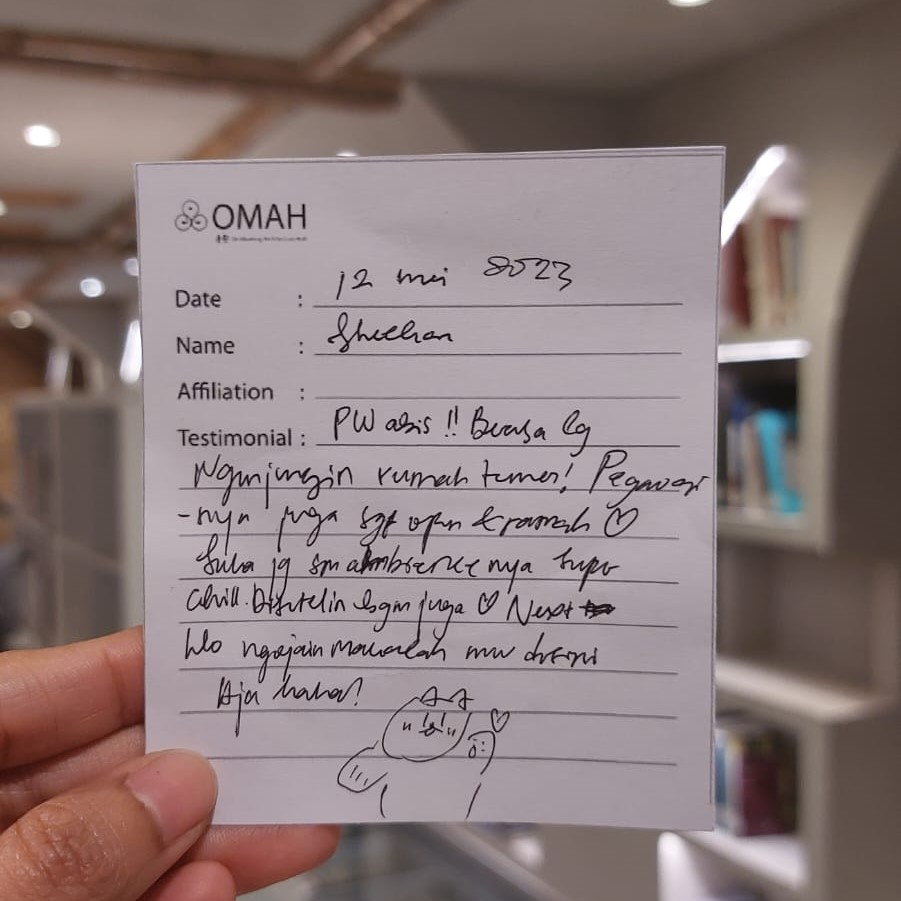 OMAH
Date : 12 mei 2023
Name : Sheehan
Affiliation :
Testimonial : PW abis !! Berasa lg
Ngunjungin rumah temen! Pegawai
-nya juga sgt open & ramah ♡
Suka jg sm ambience nya super
chill. Disetelin lagu juga ♡ Next
klo ngajain makalah mw disini
Aja haha!